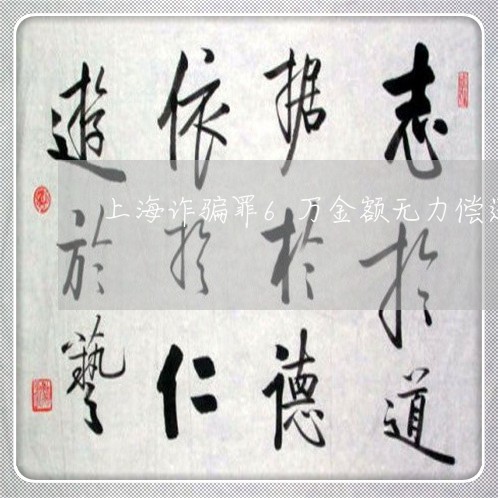 志於道
据於德
依於仁
遊於藝
上海诈骗罪6万金额无力偿